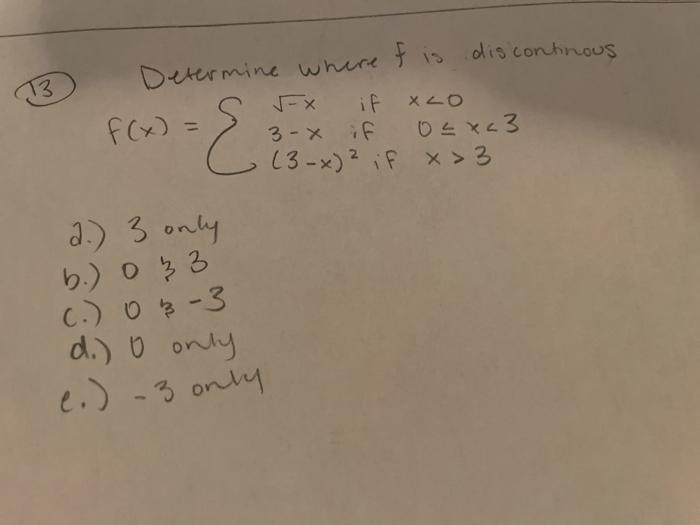 13 Determine where f is discontinous
f(x) = { √-x if x<0
3-x if 0≤x<3
(3-x)² if x>3
a.) 3 only
b.) 0 & 3
c.) 0 & -3
d.) 0 only
e.) -3 only